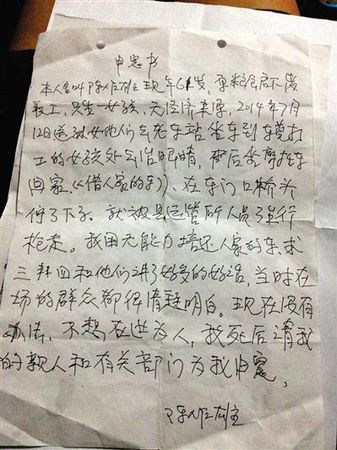 申冤书
本人名叫陈佐雄现年61岁,系粮食局下岗
职工,只生一女孩,无经济来源,2014年7月
12日送孩女他们去车站坐车到东莞打
工的女孩处去治眼睛,然后季摩托车
回家(借人家的车)、在东门口桥头
停了下子。就被县运管所人员强行
枪走。我因无能力赔还人家的车求
三拜四和他们讲了好多的好话,当时在
场的群众都很清楚明白。现在没有
办法,不想在世为人,我死后请我
的亲人和有关部门为我申冤,
陈佐雄